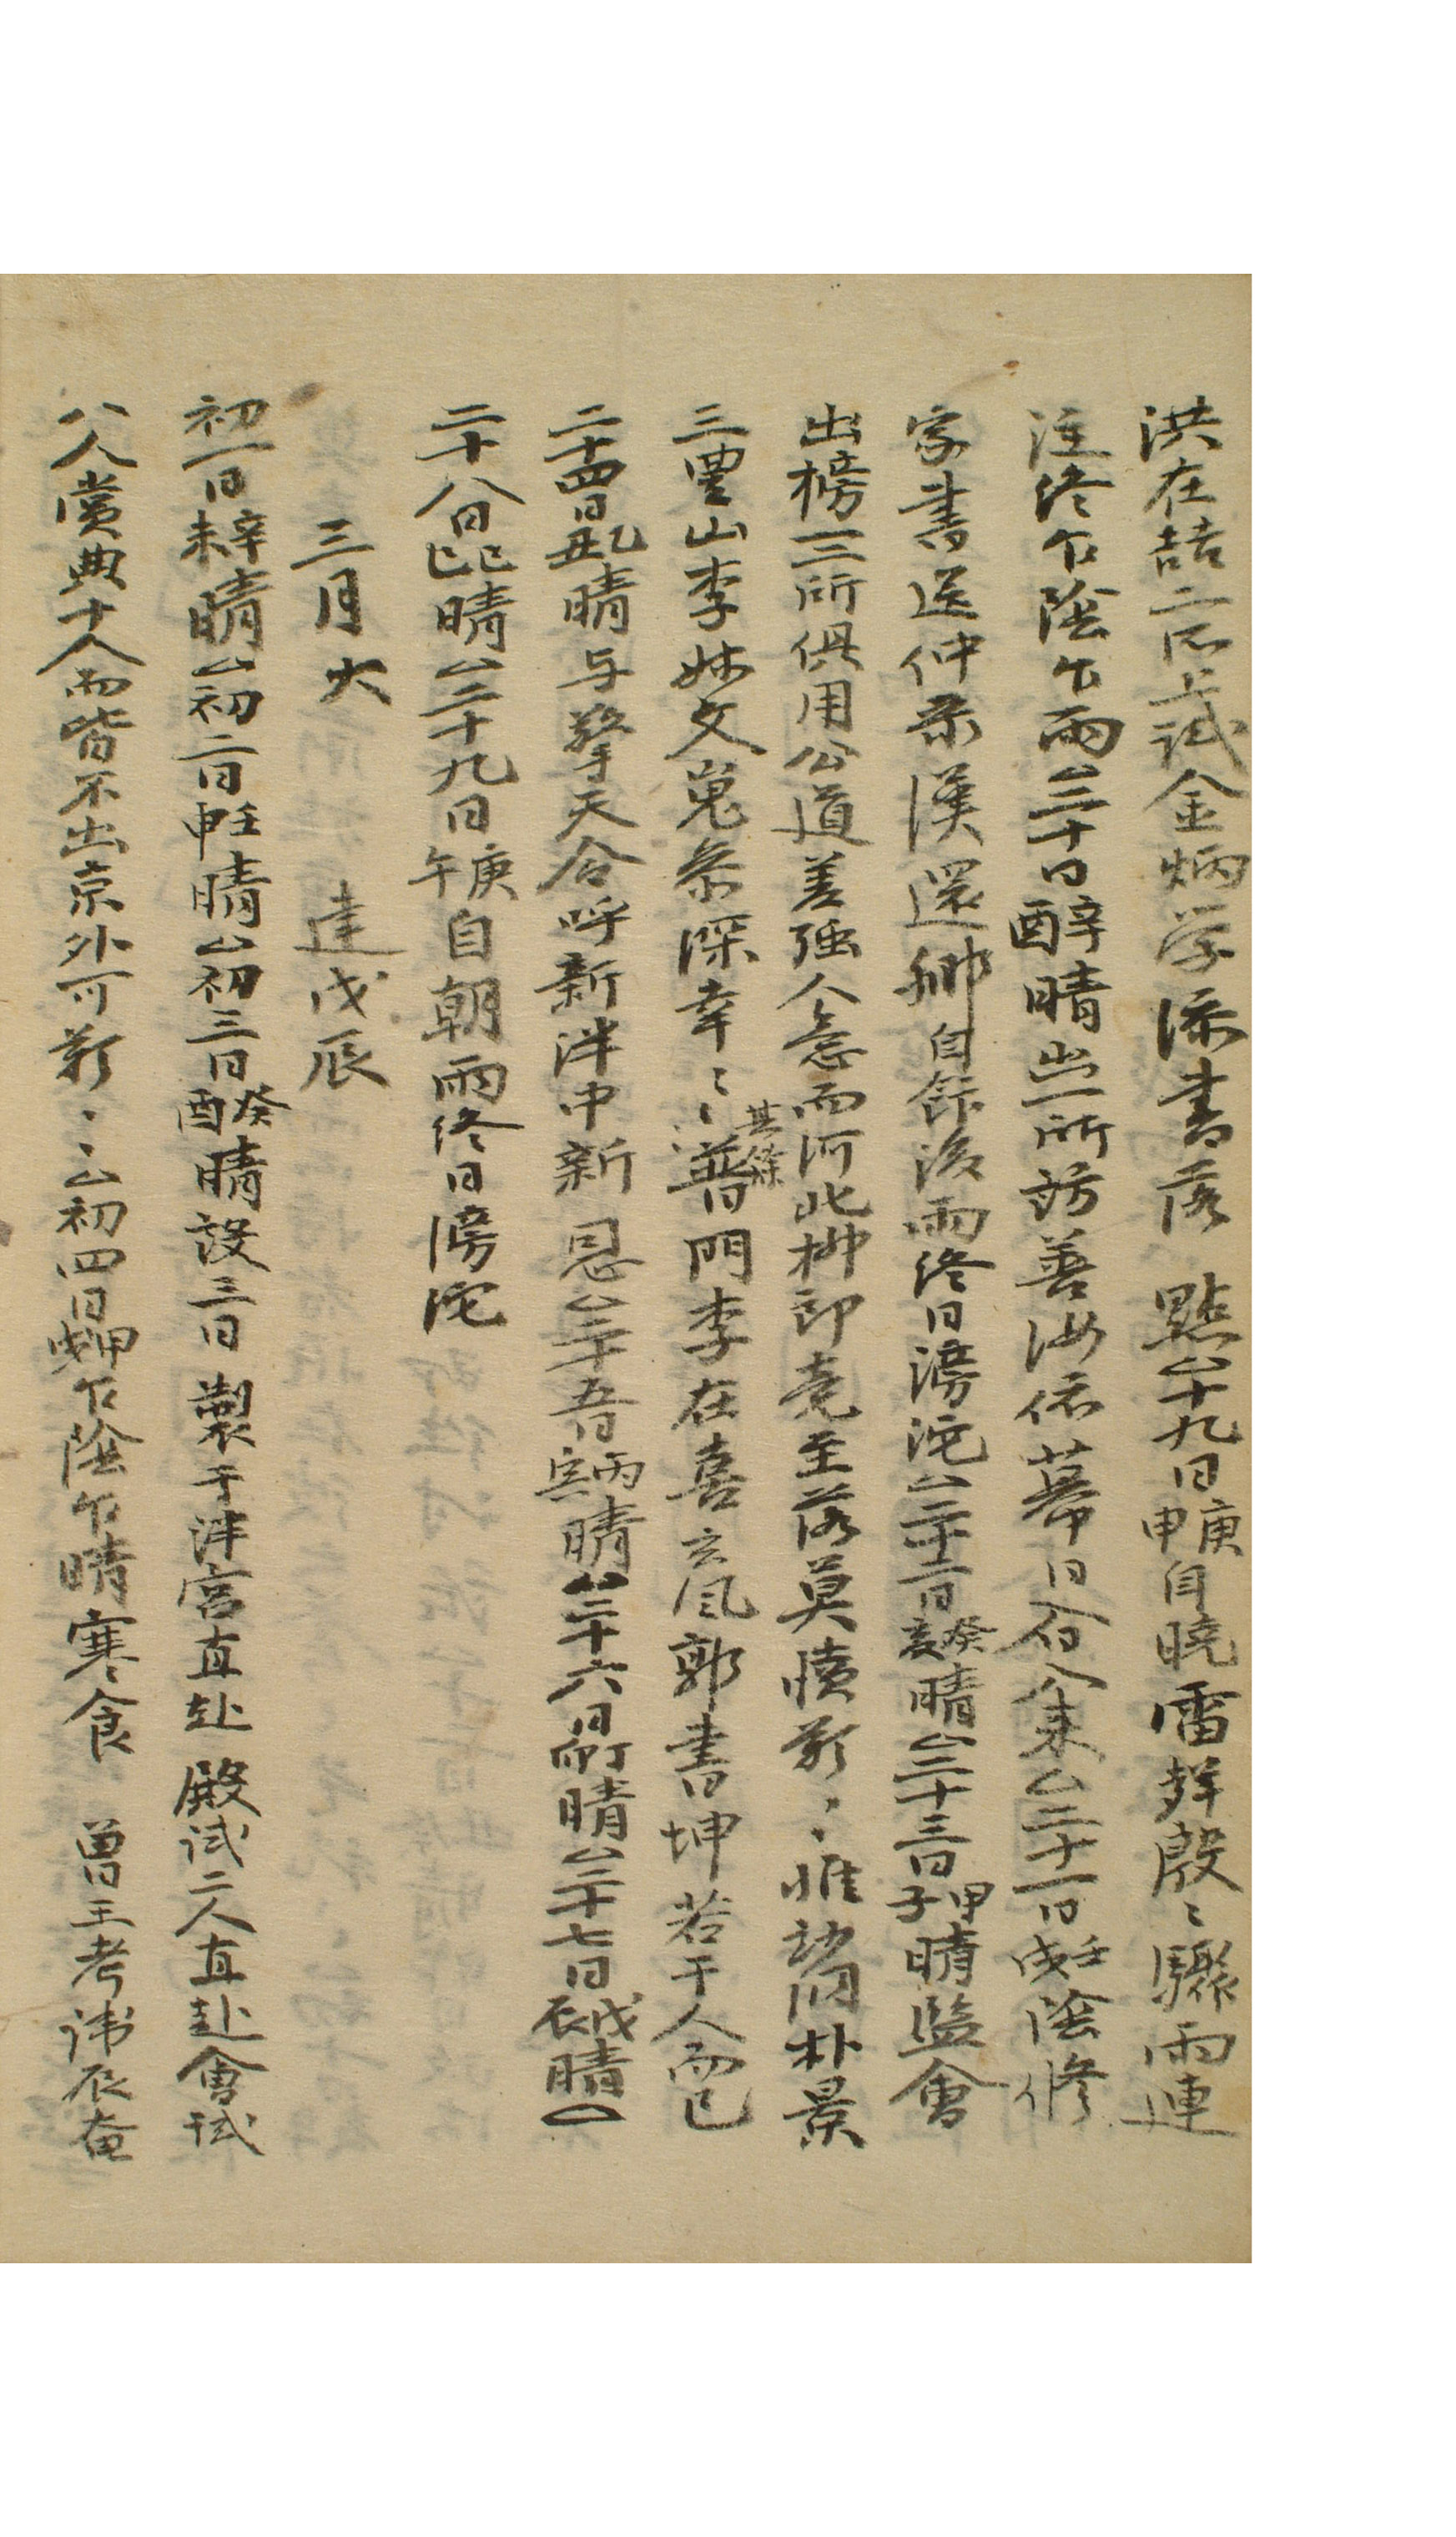 洪在喆二所試金炳学添書落 點△十九日庚申自曉雷聲殷〻驟雨連
注終乍陰乍雨△二十日辛酉晴出一所訪善汝依幕日合人來△二十一日壬戌陰修
家書送仲彔漢還鄉自飯後雨終日滂沱△二十二日癸亥晴△二十三日甲子晴監會
出榜一二所俱用公道差强人意而河北柳郎竟至落莫憤歎〻惟諸洞朴景
三豊山李妹文嵬參深幸〻其餘普門李在喜玄風郭書坤若干人而已
二十四日乙丑晴与擎天合呼新泮中新 恩△二十五日丙寅晴△二十六日丁卯晴△二十七日戊辰晴△
二十八日己巳晴△二十九日庚午自朝雨終日滂沱
三月大 建戊辰
初一日辛未晴△初二日壬申晴△初三日癸酉晴設三日 製于泮宮直赴 殿試二人直赴會試
八人賞典十人而皆不出京外可歎〻△初四日甲戌乍陰乍晴寒食 曾王考諱辰奄